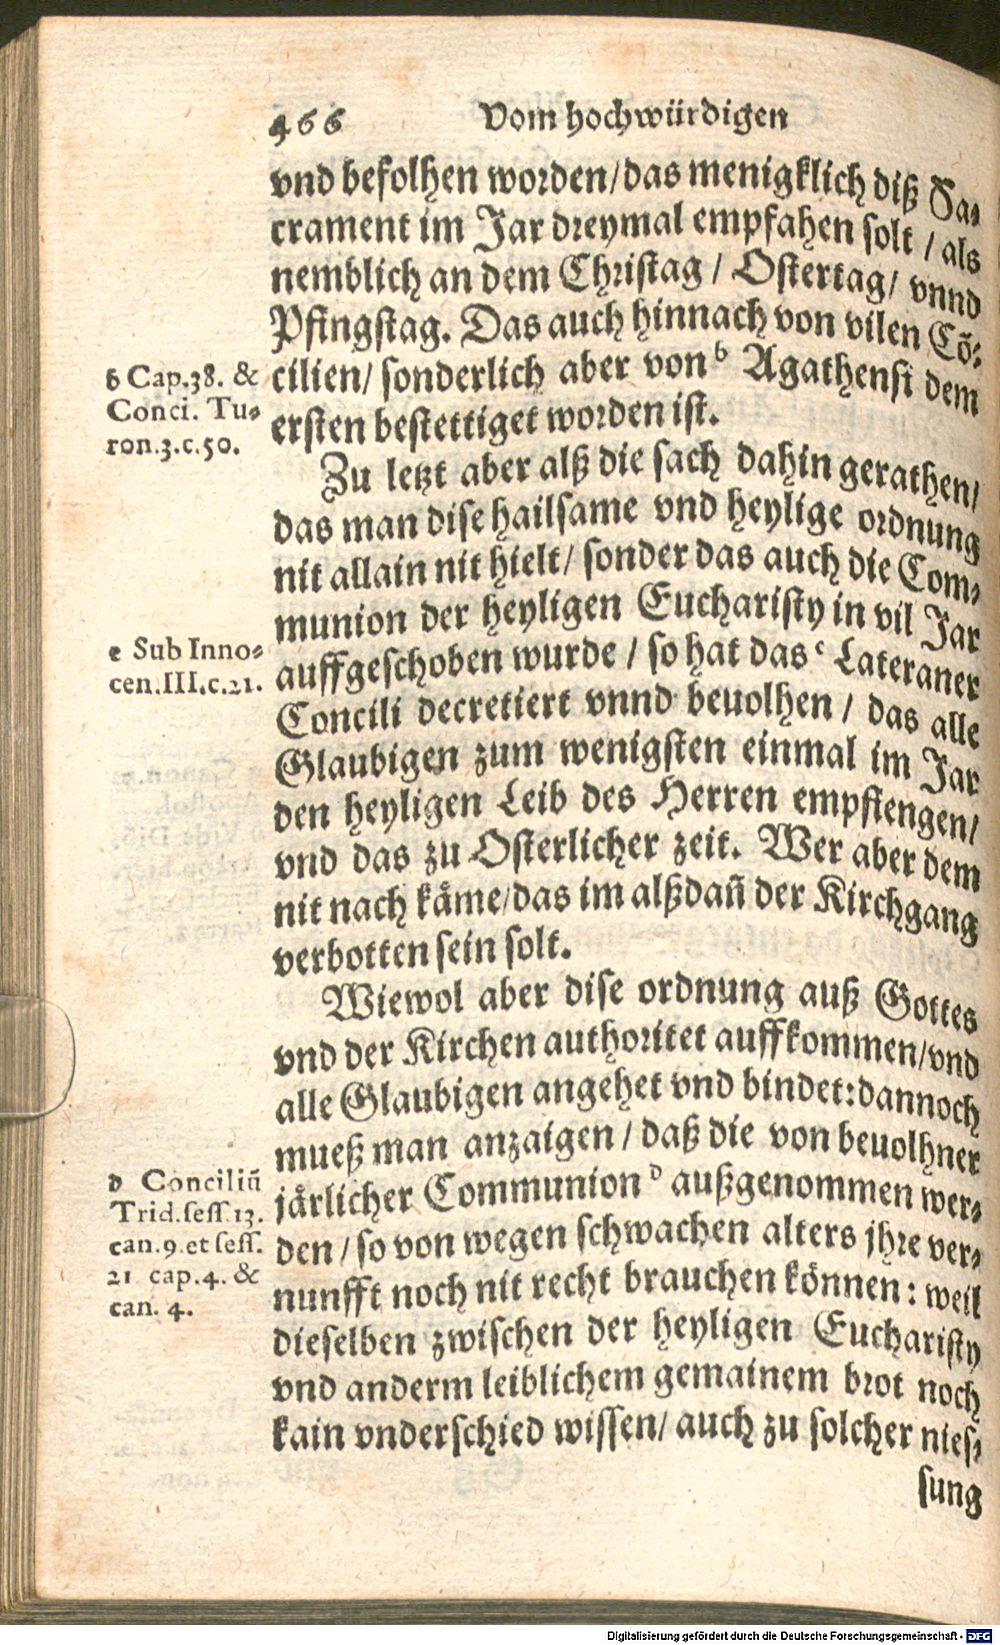 466 Vom hochwürdigen
vnd befolhen worden/das menigklich diß Sa-
crament im Jar dreymal empfahen solt / als
nemblich an dem Christag / Ostertag/ vnnd
Pfingstag. Das auch hinnach von vilen Cõ-
cilien/ sonderlich aber von b Agathensi dem
ersten bestettiget worden ist.
b Cap.38. &
Conci. Tu-
ron.3.c.50.
Zu letzt aber alß die sach dahin gerathen/
das man dise hailsame vnd heylige ordnung
nit allain nit hielt/ sonder das auch die Com-
munion der heyligen Eucharisty in vil Jar
auffgeschoben wurde / so hat das c Lateraner
Concili decretiert vnnd beuolhen / das alle
Glaubigen zum wenigsten einmal im Jar
den heyligen Leib des Herren empfiengen/
vnd das zu Osterlicher zeit. Wer aber dem
nit nach kåme/das im alßdañ der Kirchgang
verbotten sein solt.
c Sub Inno-
cen.III.c.21.
Wiewol aber dise ordnung auß Gottes
vnd der Kirchen authoritet auffkommen/vnd
alle Glaubigen angehet vnd bindet:dannoch
mueß man anzaigen / daß die von beuolhner
jårlicher Communion d außgenommen wer-
den / so von wegen schwachen alters jhre ver-
nunfft noch nit recht brauchen können: weil
dieselben zwischen der heyligen Eucharisty
vnd anderm leiblichem gemainem brot noch
kain vnderschied wissen/ auch zu solcher nies-
sung
d Conciliũ
Trid.sess.13.
can.9.et sess.
21 cap.4. &
can. 4.
Digitalisierung gefördert durch die Deutsche Forschungsgemeinschaft - DFG